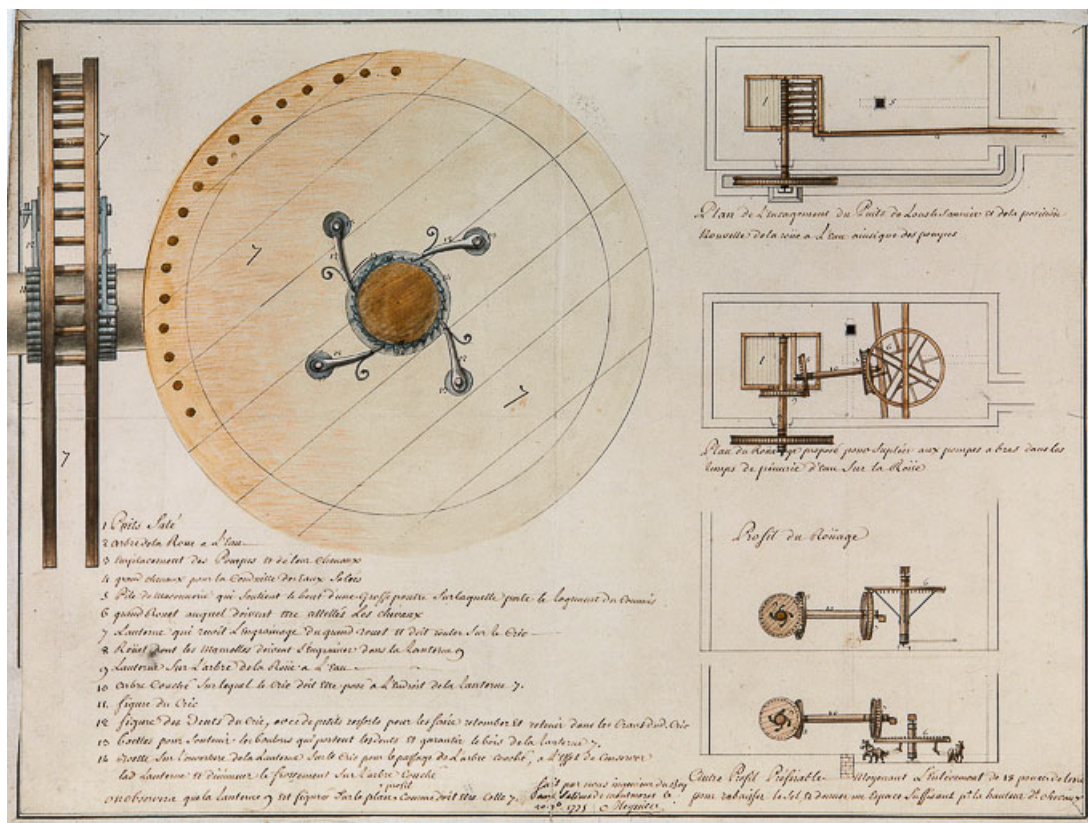 Plan de L'encagement du Puits de Lonsle Saunier et de la position
Nouvelle de la roüe a L'Eau ainsi que des pompes
Plan du Roüage proposé pour supléer aux pompes a bras dans les
temps de pénurie d'eau Sur la Roüe
Profil du Roüage
1 Puits Salé
2 arbre de la Roue a L'Eau
3 Emplacement des Pompes et de leur Chenaux
4 grand chenaux pour la Conduitte des Eaux Salées
5 Pile de massonnerie qui Soutient le bout d'une Grosse poutre Sur laquelle porte le logement du Commis
6 grand Rouet auquel doivent etre attellés Les chevaux
7 Lanterne qui reçoit L'Engrainage du grand rouet et doit rouler Sur le Cric
8 Roüet dont les Mamelles doivent S'engrainer dans la Lanterne 9
9 Lanterne Sur L'arbre de la Roüe a L'Eau
10 arbre Couché Sur lequel le Cric doit etre posé a L'Endroit de la lanterne 7.
11 figure du Cric
12 figure des Dents du Cric, avec de petits ressorts pour les faire retomber et retenir dans les Crans dud. Cric
13 boettes pour Soutenir les boulons qui portent les dents et garantir le bois de la Lanterne 7.
14 Sur L'ouverture de la Lanterne Sur le Cric pour le passage de L'arbre Couché, a L'Effet de Conserver
lad Lanterne et diminuer le frottement Sur L'arbre Couché
profil
on observera que la lanterne 9 est figurée Sur le plan Comme doit etre Celle 7.
fait par nous ingenieur du Roy
1775
Autre Profil Préférable Moyenant L'Enlevement de 18 pouces de terre
pour rabaisser le Sol et donner un Espace Suffisant pr. la hauteur des chevaux